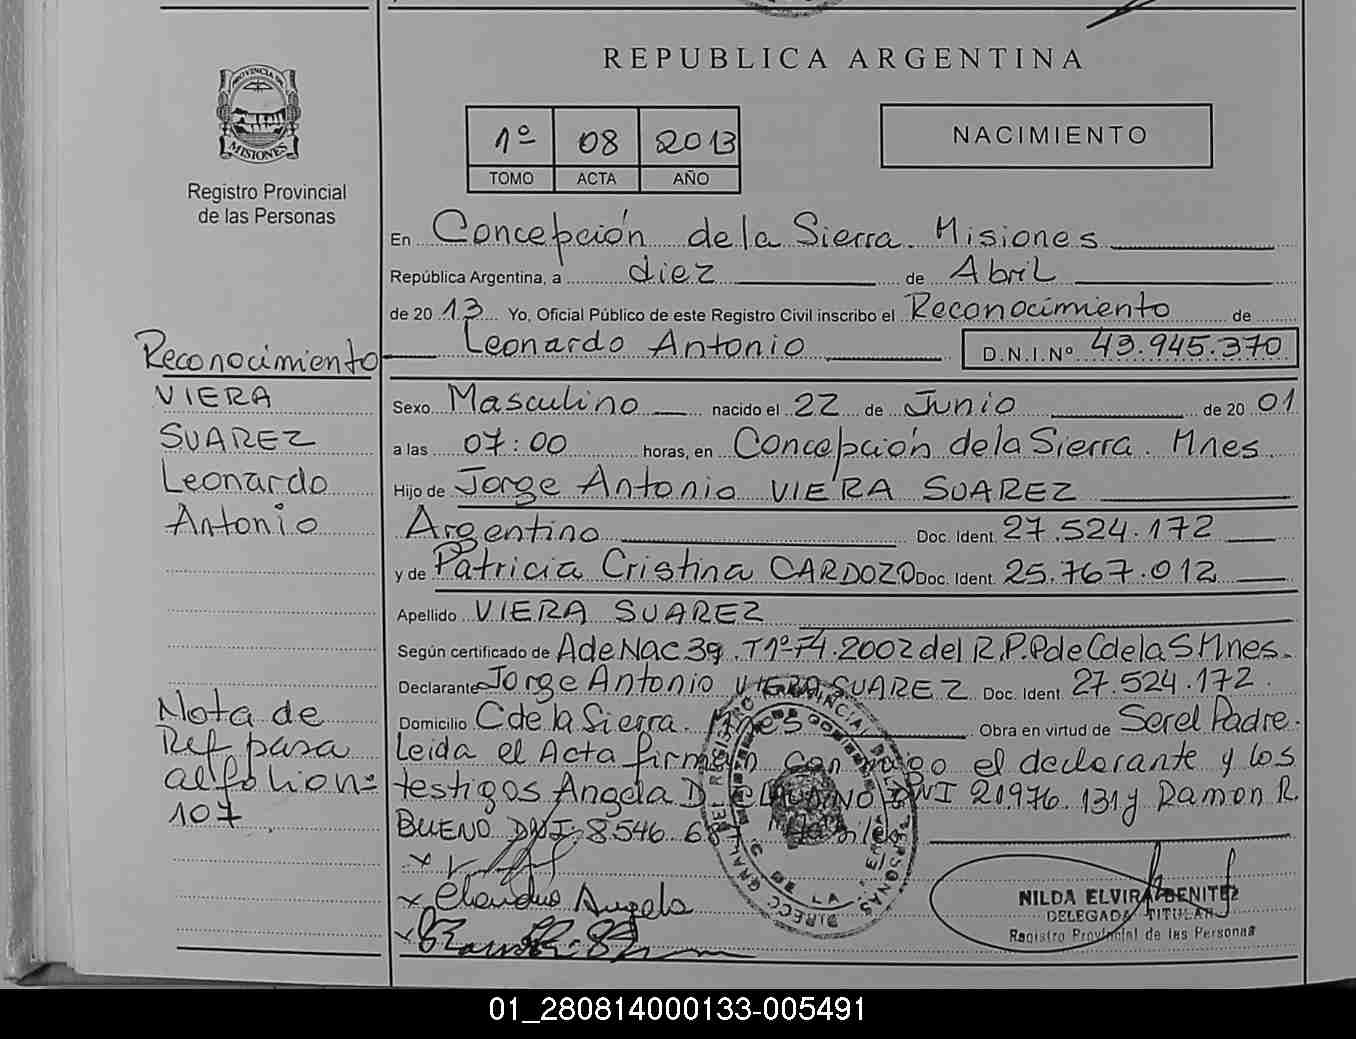 REPUBLICA ARGENTINA
PROVINCIA DE
MISIONES
Registro Provincial
de las Personas
1º 08 2013
TOMO ACTA AÑO
NACIMIENTO
En Concepción de la Sierra. Misiones
República Argentina, a diez de Abril
de 2013 Yo, Oficial Público de este Registro Civil inscribo el Reconocimiento de
Leonardo Antonio D.N.I.Nº 43.945.370
Reconocimiento
VIERA
SUAREZ
Leonardo
Antonio
Sexo Masculino nacido el 22 de Junio de 2001
a las 07:00 horas, en Concepción de la Sierra. Mnes.
Hijo de Jorge Antonio VIERA SUAREZ
Argentino Doc. Ident. 27.524.172
y de Patricia Cristina CARDOZO Doc. Ident. 25.767.012
Apellido VIERA SUAREZ
Según certificado de A de Nac 39. T1º F4. 2002 del R.P.P de C de la S Mnes.
Declarante Jorge Antonio VIERA SUAREZ Doc. Ident. 27.524.172.
Domicilio C de la Sierra. Mnes Obra en virtud de Ser el Padre.
Leida el Acta firman con migo el declarante y los
testigos Angela D. DNI 21.976.131 y Ramon R.
BUENO DNI. 8.546.
Nota de
Ref pasa
al folio nº
107
Claudio Angela
NILDA ELVIRA BENITEZ
DELEGADA TITULAR
Registro Provincial de las Personas
01_280814000133-005491